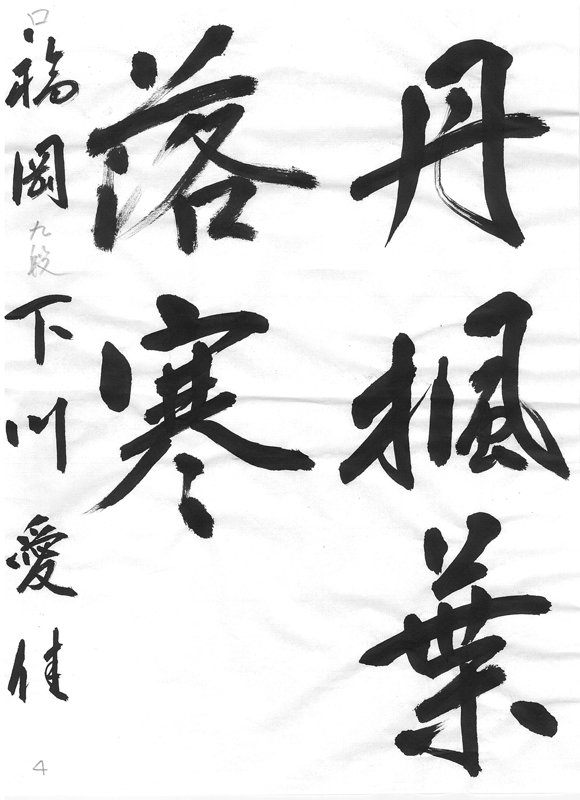 丹楓葉
落寒
福岡 九段 下川愛佳
4